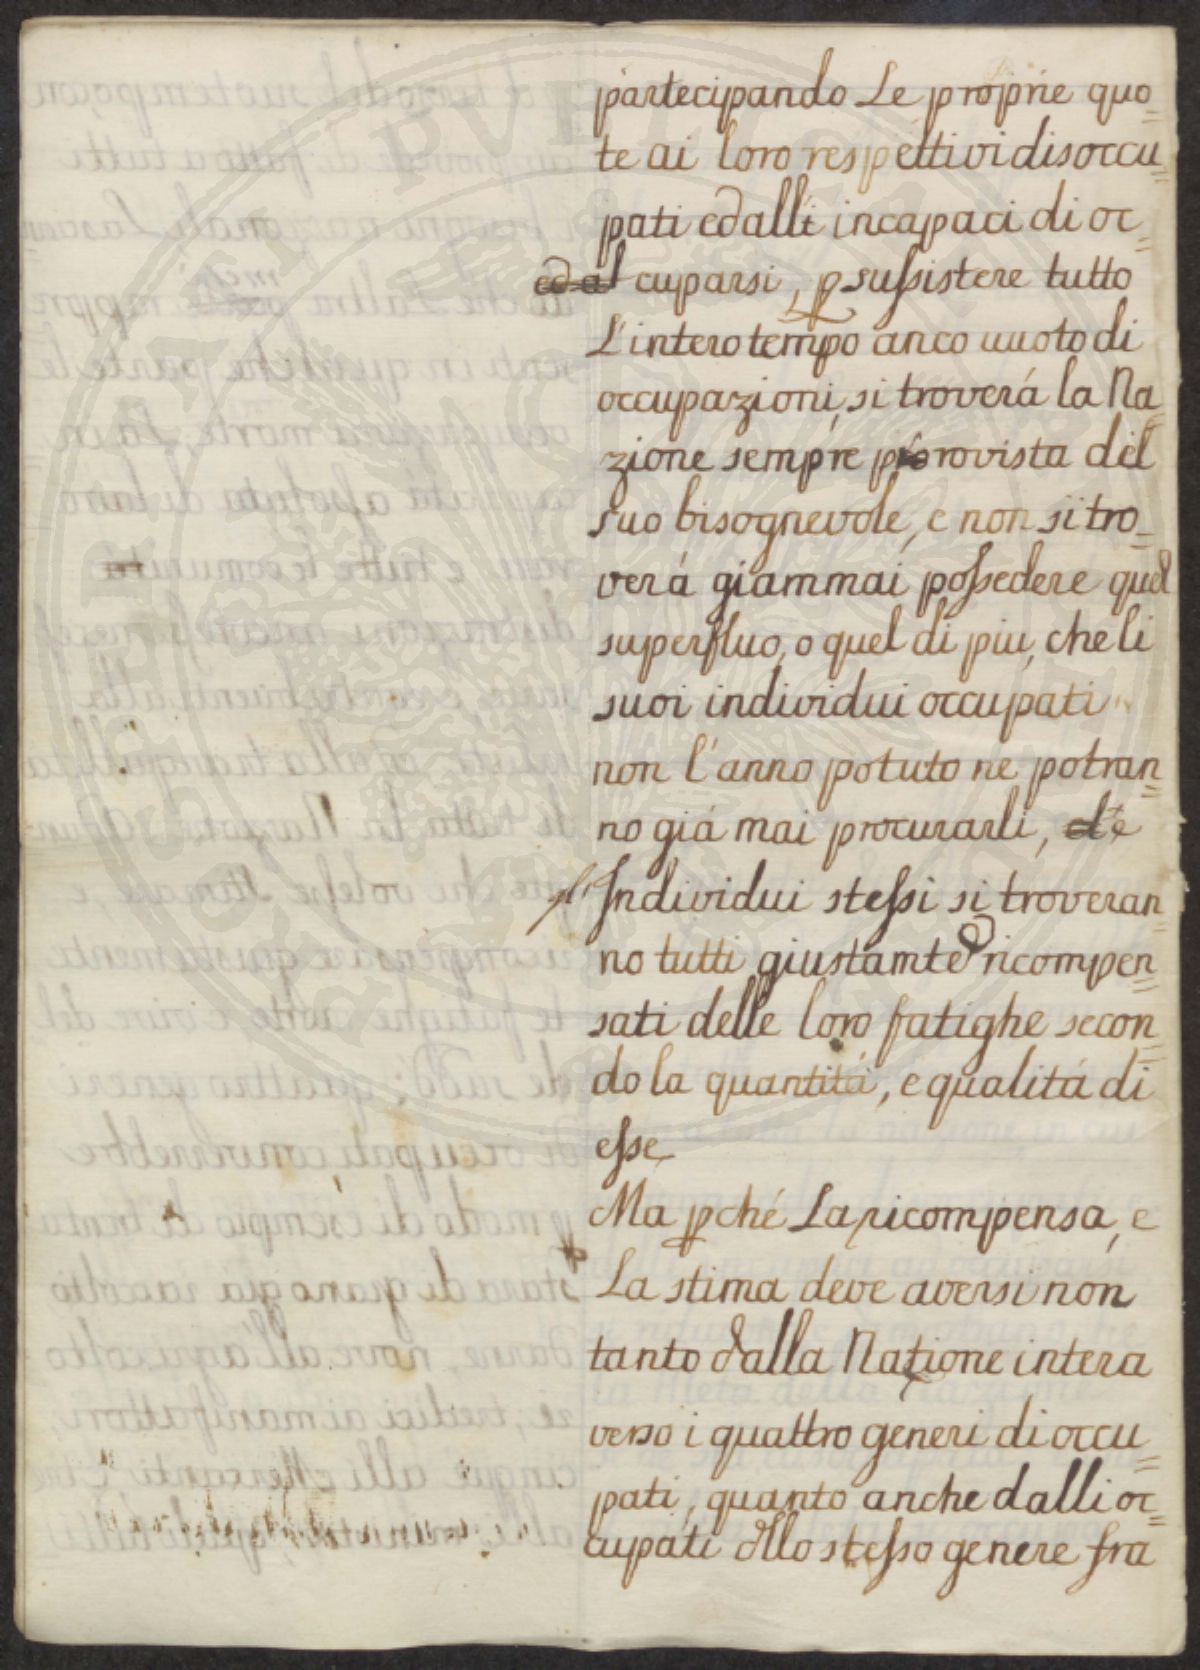 partecipando Le proprie quo=
te ai loro respettivi disoccu=
pati ed alli incapaci di oc=
ed al cuparsi, p sussistere tutto
L'intero tempo anco uuoto di
occupazioni, si troverá la Na=
zione sempre provista del
suo bisognevole, e non si tro=
verá giammai possedere quel
superfluo, o quel di piu, che li
suoi individui occupati
non l'anno potuto ne potran=
no giá mai procurarli, e
gl' Individui stessi si troveran=
no tutti giustamte ricompen=
sati delle loro fatighe secon=
do la quantitá, e qualitá di
esse
Ma pché La ricompensa, e
La stima deve aversi non
tanto dalla Natione intera
verso i quattro generi di occu=
pati, quanto anche dalli oc=
cupati dllo stesso genere fra